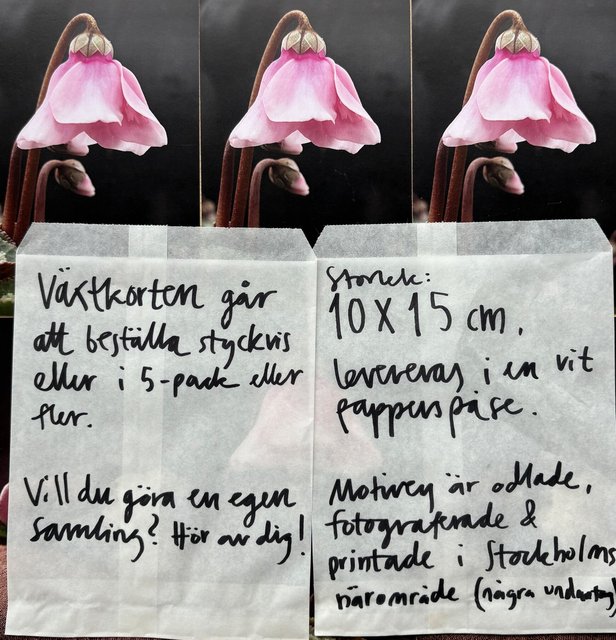 Växtkorten går
att beställa styckvis
eller i 5-pack eller
fler.
Vill du göra en egen
samling? Hör av dig!
Storlek:
10 X 15 cm.
Levereras i en vit
papperspåse.
Motiven är odlade,
fotograferade &
printade i Stockholms
närområde (några undantag)